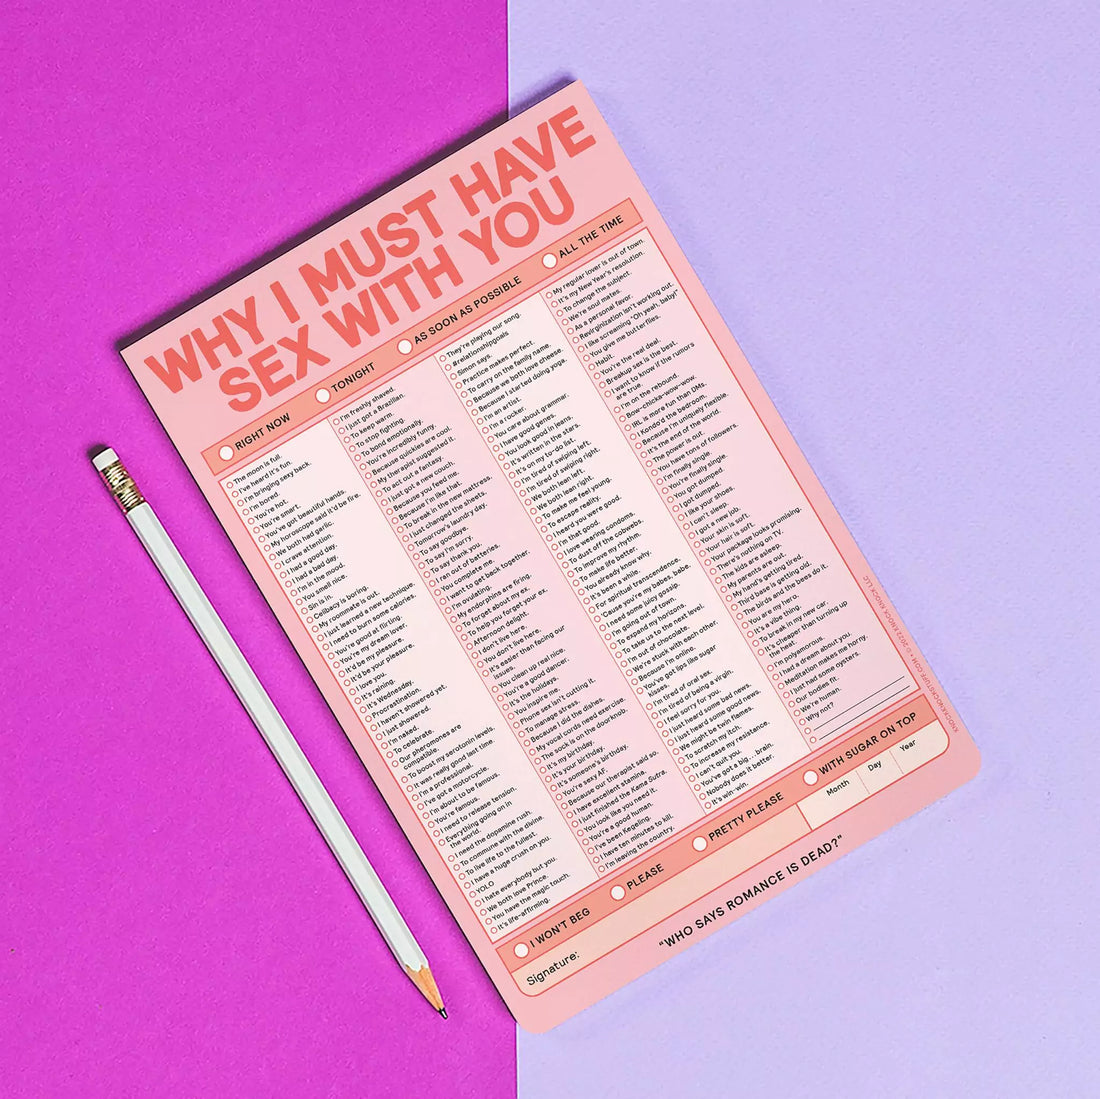 WHY I MUST HAVE
SEX WITH YOU
RIGHT NOW
TONIGHT
AS SOON AS POSSIBLE
ALL THE TIME
The moon is full.
I've heard it's fun.
I'm bringing sexy back.
I'm bored.
You're hot.
You're smart.
You've got beautiful hands.
My horoscope said it'd be fire.
We both had garlic.
I crave attention.
I had a good day.
I had a bad day.
I'm in the mood.
You smell nice.
Sin is in.
Celibacy is boring.
My roommate is out.
I just learned a new technique.
I need to burn some calories.
You're good at flirting.
You're my dream lover.
It'd be my pleasure.
It'd be your pleasure.
I love you.
It's raining.
It's Wednesday.
Procrastination.
I haven't showered yet.
I just showered.
I'm naked.
To celebrate.
Our pheromones are
compatible.
To boost my serotonin levels.
It was really good last time.
I'm a professional.
I've got a motorcycle.
I'm about to be famous.
You're famous.
I need to release tension.
Everything going on in
the world.
I need the dopamine rush.
To commune with the divine.
To live life to the fullest.
I have a huge crush on you.
YOLO
I hate everybody but you.
We both love Prince.
You have the magic touch.
It's life-affirming.
I'm freshly shaved.
I just got a Brazilian.
To keep warm.
To stop fighting.
To bond emotionally.
You're incredibly funny.
Because quickies are cool.
My therapist suggested it.
To act out a fantasy.
I just got a new couch.
Because you feed me.
Because I'm like that.
To break in the new mattress.
I just changed the sheets.
Tomorrow's laundry day.
To say goodbye.
To say I'm sorry.
To say thank you.
I ran out of batteries.
You complete me.
I want to get back together.
I'm ovulating.
My endorphins are firing.
To forget about my ex.
To help you forget your ex.
Afternoon delight.
I don't live here.
You don't live here.
It's easier than facing our
issues.
You clean up real nice.
You're a good dancer.
It's the holidays.
You inspire me.
Phone sex isn't cutting it.
To manage stress.
Because I did the dishes.
My vocal cords need exercise.
The sock is on the doorknob.
It's my birthday.
It's your birthday.
It's someone's birthday.
You're sexy AF.
Because our therapist said so.
I have excellent stamina.
I just finished the Kama Sutra.
You look like you need it.
You're a good human.
I've been Kegeling.
I have ten minutes to kill.
I'm leaving the country.
They're playing our song.
#relationshipgoals
Simon says.
Practice makes perfect.
To carry on the family name.
Because we both love cheese.
Because I started doing yoga.
I'm an artist.
I'm a rocker.
You care about grammar.
I have good genes.
You look good in jeans.
It's written in the stars.
It's on my to-do list.
I'm tired of swiping left.
I'm tired of swiping right.
We both lean left.
We both lean right.
To make me feel young.
To escape reality.
I heard you were good.
I'm that good.
I love wearing condoms.
To dust off the cobwebs.
To improve my rhythm.
To make life better.
You already know why.
It's been a while.
For spiritual transcendence.
'Cause you're my babes, babe.
I need some juicy gossip.
I'm going out of town.
To expand my horizons.
To take us to the next level.
I'm out of chocolate.
We're stuck with each other.
Because I'm online.
You've got lips like sugar
kisses.
I'm tired of oral sex.
I'm tired of being a virgin.
I feel sorry for you.
I just heard some bad news.
I just heard some good news.
We might be twin flames.
To scratch my itch.
To increase my resistance.
I can't quit you.
You've got a big... brain.
Nobody does it better.
It's win-win.
My regular lover is out of town.
It's my New Year's resolution.
To change the subject.
We're soul mates.
As a personal favor.
Revirginization isn't working out.
I like screaming "Oh yeah, baby!"
You give me butterflies.
Habit.
You're the real deal.
Breakup sex is the best.
I want to know if the rumors
are true.
I'm on the rebound.
Bow-chicka-wow-wow.
IRL is more fun than DMs.
I Kondo'd the bedroom.
Because I'm uniquely flexible.
It's the end of the world.
The power is out.
You have tons of followers.
I'm finally single.
You're finally single.
You got dumped.
I got dumped.
I like your shoes.
I can't sleep.
I got a new job.
Your skin is soft.
Your hair is soft.
Your package looks promising.
There's nothing on TV.
The kids are asleep.
My parents are out.
My hand's getting tired.
Third base is getting old.
The birds and the bees do it.
You are my hero.
It's a vibe thing.
To break in my new car.
It's cheaper than turning up
the heat.
I'm polyamorous.
I had a dream about you.
Meditation makes me horny.
I just had some oysters.
Our bodies fit.
We're human.
Why not?
I WON'T BEG
PLEASE
PRETTY PLEASE
WITH SUGAR ON TOP
Signature:
Month
Day
Year
"WHO SAYS ROMANCE IS DEAD?"
KNOCKKNOCKSTUFF.COM • © 2022 KNOCK KNOCK LLC